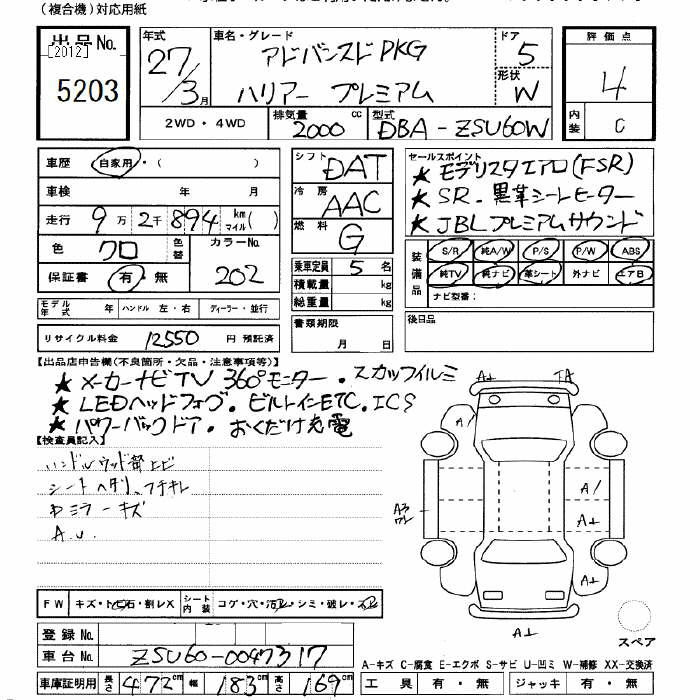 (複合機)対応用紙
出品No. [2012] 5203
年式 27/3月
車名・グレード アドバンスドPKG
ハリアー プレミアム
ドア 5
形状 W
評価点 4
内装 C
2WD・4WD
排気量 2000 cc
型式 DBA-ZSU60W
車歴 自家用・( )
車検 年 月
走行 9万2千894 km マイル( )
色 クロ 色替 カラーNo. 202
保証書 有・無
モデル年式 年 ハンドル 左・右 ディーラー・並行
リサイクル料金 12550 円 預託済
シフト DAT
冷房 AAC
燃料 G
乗車定員 5 名
積載量 kg
総重量 kg
書類期限 月 日
セールスポイント
★ モデリスタエアロ(FSR)
★ SR.黒革シートヒーター
★ JBLプレミアムサウンド
装備品 S/R 純A/W P/S P/W ABS
純TV 純ナビ 革シート 外ナビ エアB
ナビ型番:
後日品
【出品店申告欄(不良箇所・欠品・注意事項等)】
★ メーカーナビTV 360°モニター.スカッフイルミ
★ LEDヘッドフォグ.ビルトインETC.ICS
★ パワーバックドア.おくだけ充電
【検査員記入】
ハンドルウッド部ヒビ
シートヘタリ、フチキレ
ミラーキズ
A.U.
FW キズ・トビ石・割レX シート内装 コゲ・穴・汚レ・シミ・破レ・スレ
登録No.
車台No. ZSU60-0047317
車庫証明用 長さ 472cm 幅 183cm 高さ 169cm
A⊥
A/
A/
A⊥
A⊥
A⊥
スペア
A-キズ C-腐食 E-エクボ S-サビ U-凹ミ W-補修 XX-交換済
工具 有・無 ジャッキ 有・無